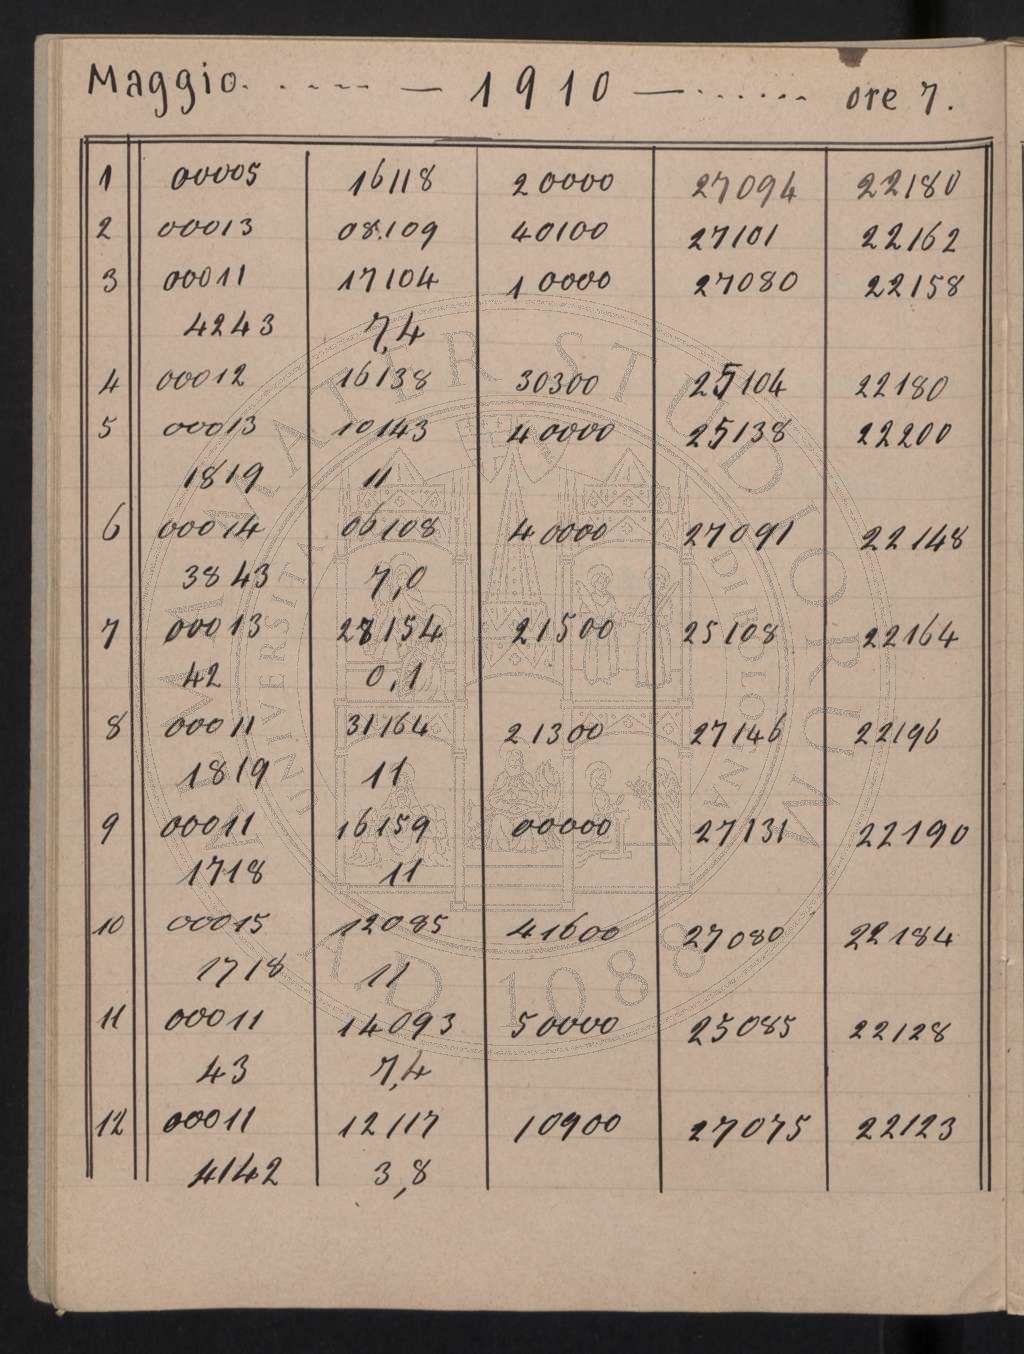 Maggio. . - - - - — 1910 — . . . . . . ore 7.
1 00005 16118 20000 27094 22180
2 00013 08109 40100 27101 22162
3 00011 17104 10000 27080 22158
4243 7,4
4 00012 16138 30300 25104 22180
5 00013 10143 40000 25138 22200
1819 11
6 00014 06108 40000 27091 22148
3843 7,0
7 00013 28154 21500 25108 22164
42 0,1
8 00011 31164 21300 27146 22196
1819 11
9 00011 16159 00000 27131 22190
1718 11
10 00015 12085 41600 27080 22184
1718 11
11 00011 14093 50000 25085 22128
43 7,4
12 00011 12117 10900 27075 22123
4142 3,8
ALMA MATER STUDIORUM
UNIVERSITÀ DI BOLOGNA
A.D. 1088